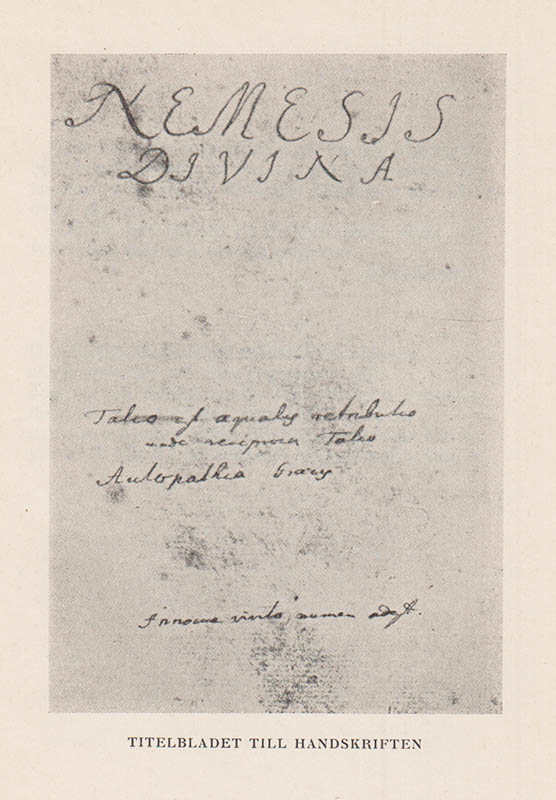 NEMESIS
DIVINA
Talio est aqualis retributio
unde reciproca Talio
Autopathia Graecis
Innocue vivito, numen adest.
TITELBLADET TILL HANDSKRIFTEN